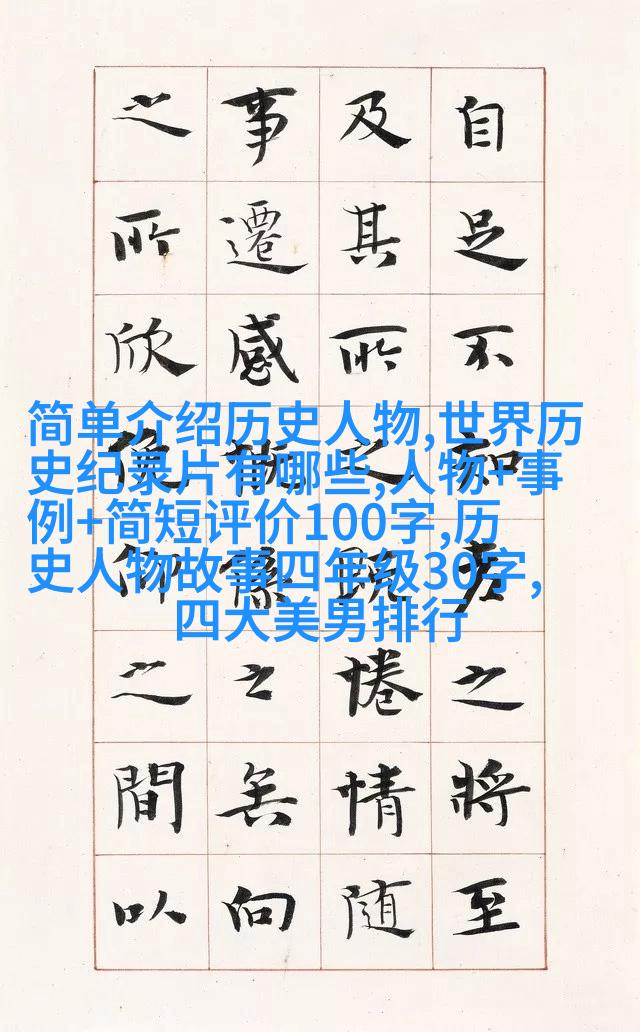 自足不知老之將至
及其所之既惓情隨
事遷感慨係之矣向
之所欣俛仰之間以
简单介绍历史人物,世界历
史纪录片有哪些,人物+事
例+简短评价100字,历
史人物故事四年级30字,
四大美男排行